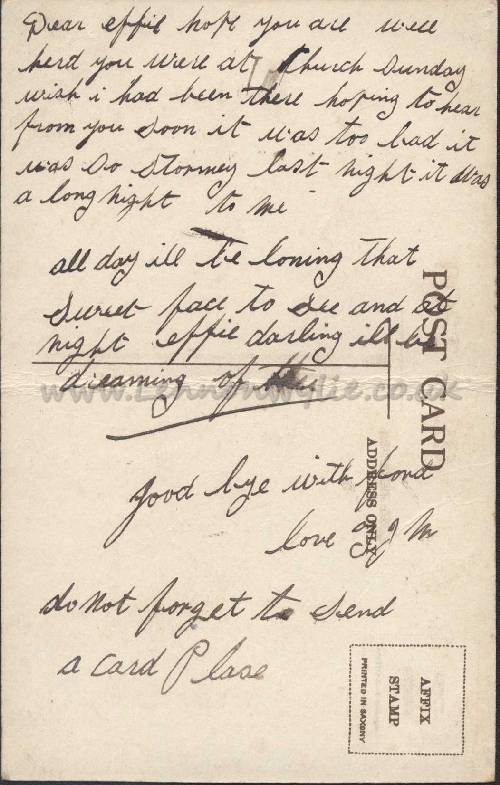 Dear effie hope you are well
herd you were at Church Sunday
wish i had been there hoping to hear
from you soon it was too bad it
was so stormey last night it was
a long night to me
all day ill be loning that
sweet face to see and at
night effie darling ill be
dreaming of thee
good bye with fond
love J M
do not forget to send
a card Plase
POST CARD
ADDRESS ONLY
AFFIX
STAMP
PRINTED IN SAXONY
www.LennonWylie.co.uk